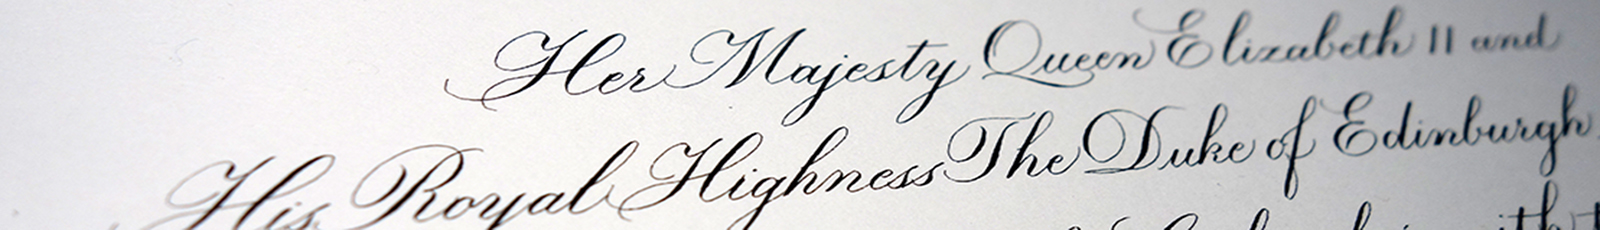 Her Majesty Queen Elizabeth II and
His Royal Highness The Duke of Edinburgh